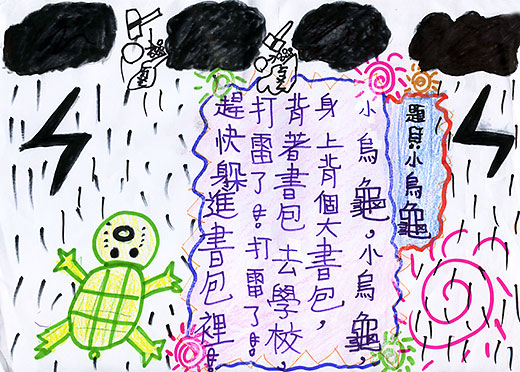 題目：小烏龜
小烏龜。小烏龜，
身上背個大書包，
背著書包去學校，
打雷了！打雷了！
趕快躲進書包裡！